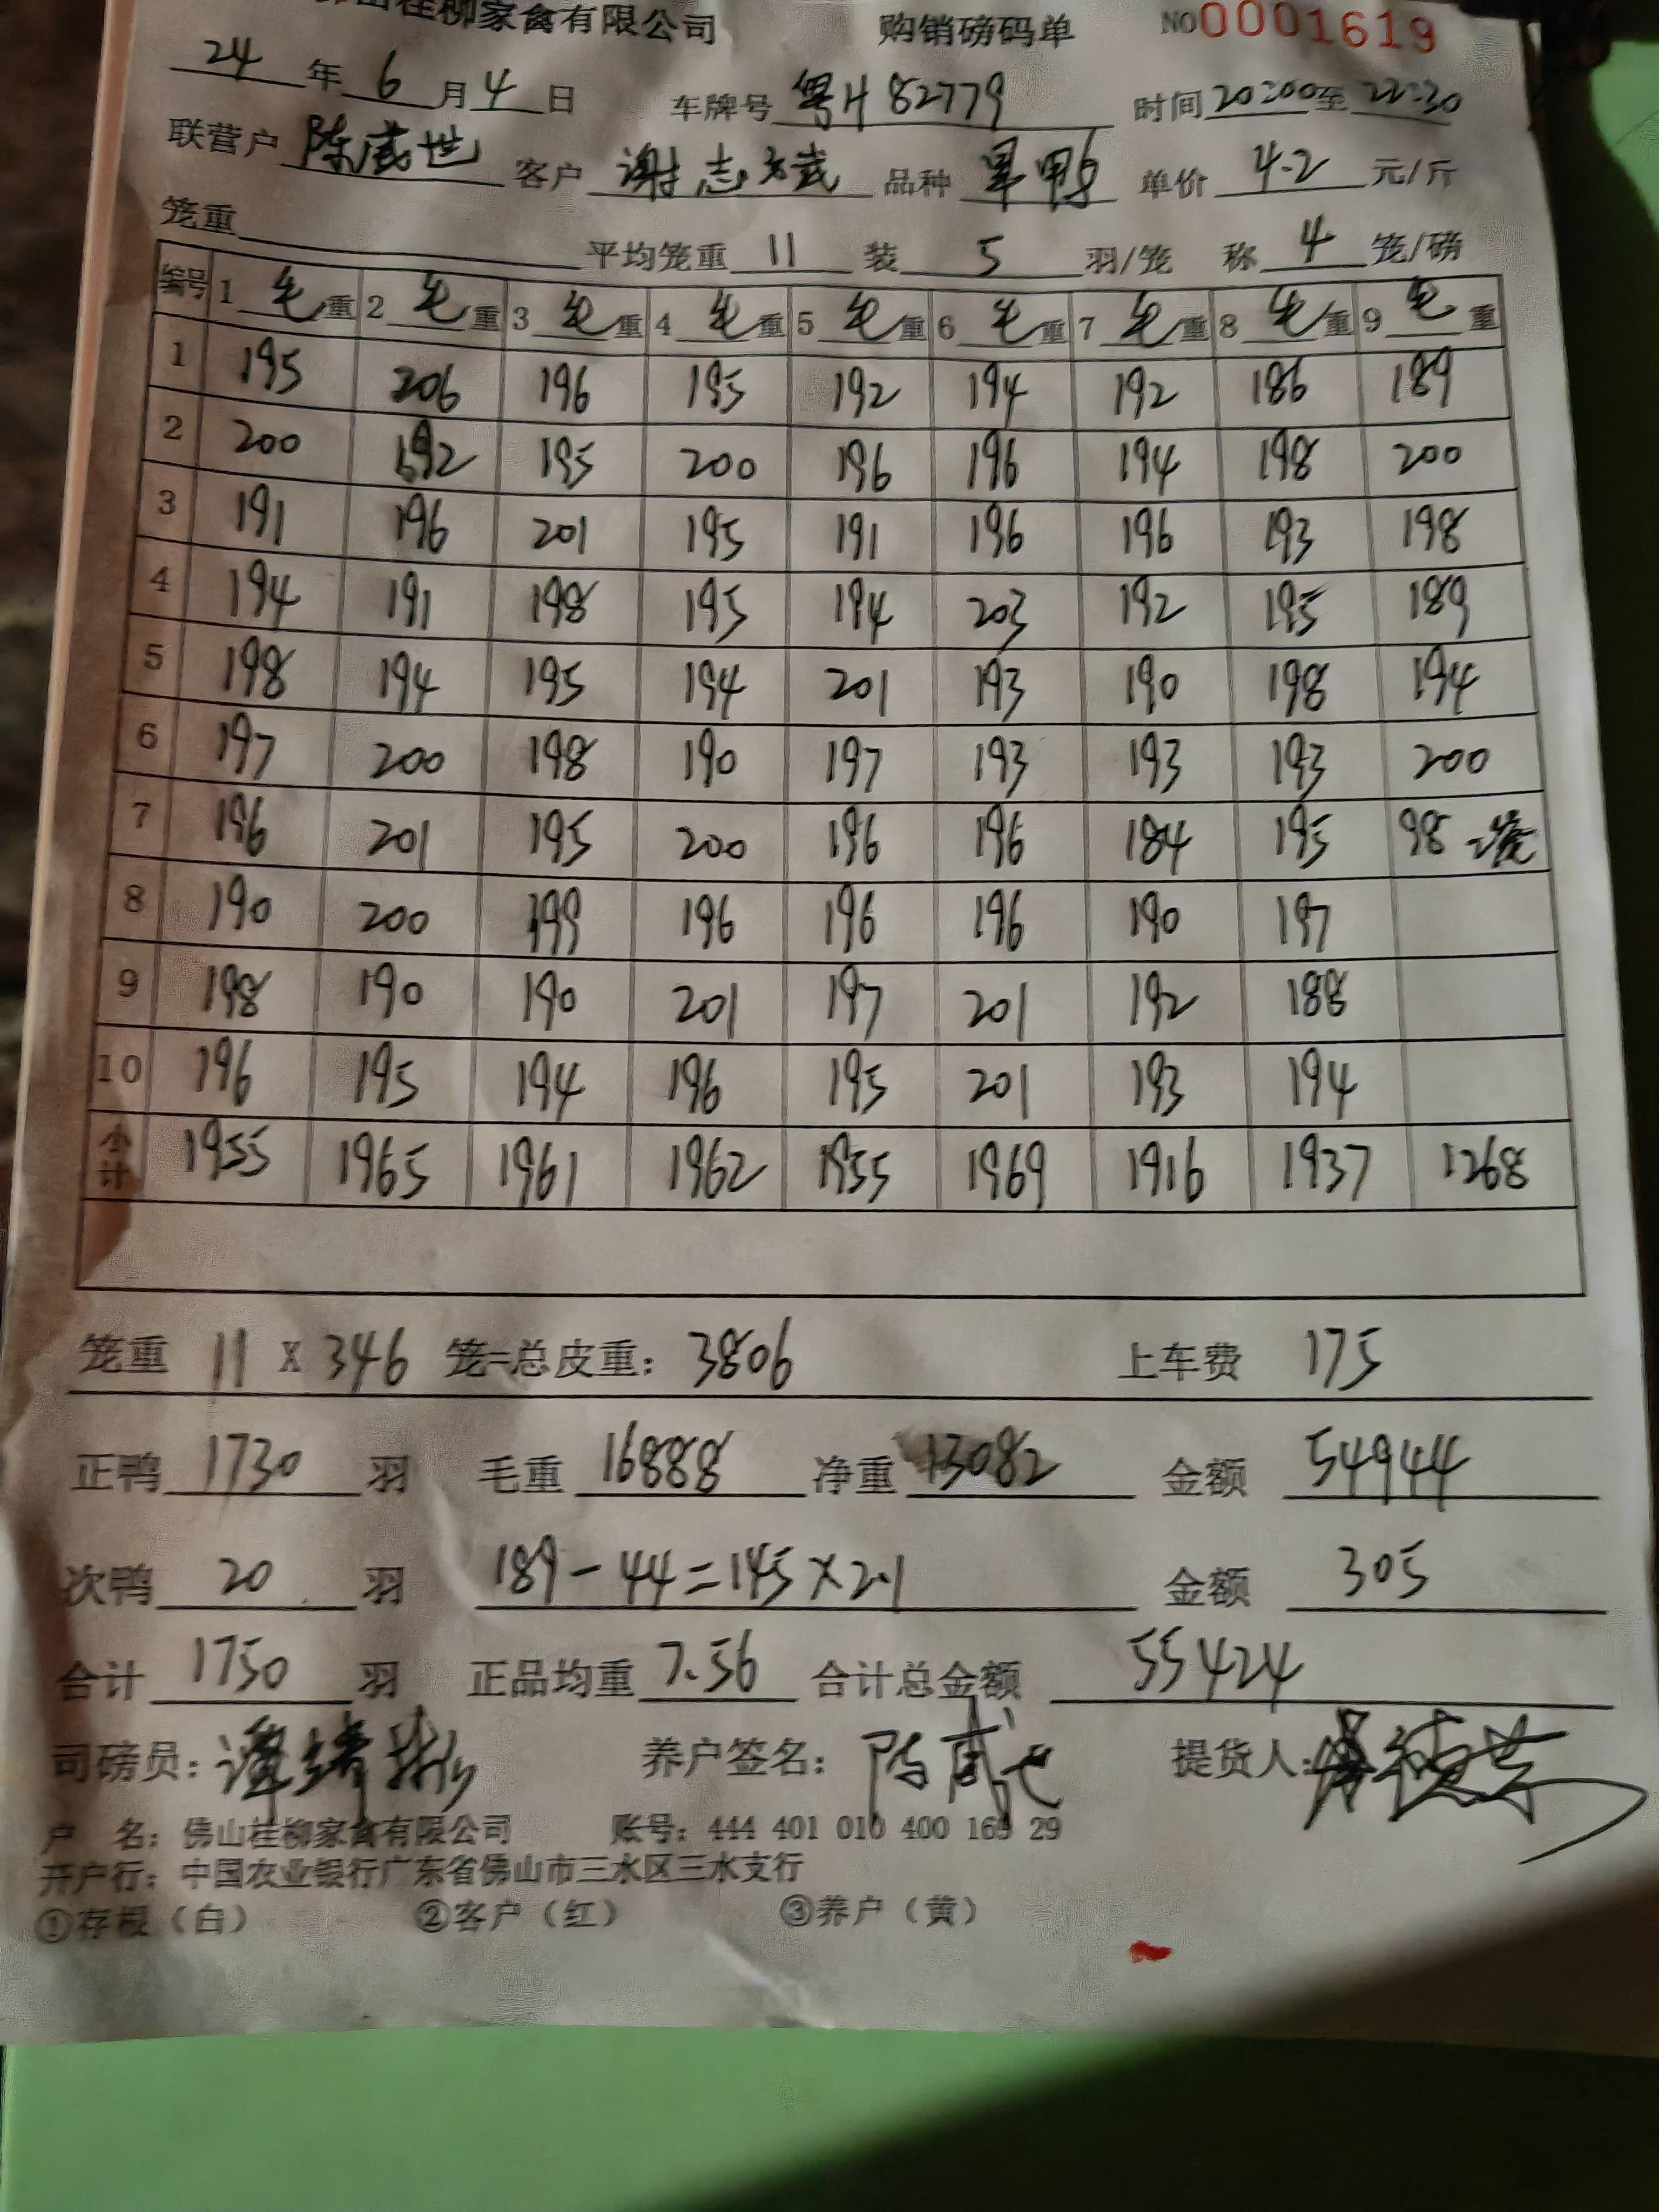 佛山桂柳家禽有限公司 购销磅码单 NO0001619
24年6月4日 车牌号 粤H82779 时间20:00至22:30
联营户 陈威世 客户 谢志斌 品种 旱鸭 单价 4.2 元/斤
笼重 平均笼重 11 装 5 羽/笼 称 4 笼/磅
编号 1 毛重 2 毛重 3 毛重 4 毛重 5 毛重 6 毛重 7 毛重 8 毛重 9 毛重
1 195 206 196 195 192 194 192 186 189
2 200 192 195 200 196 196 194 198 200
3 191 196 201 195 191 196 196 193 198
4 194 191 198 195 194 203 192 195 189
5 198 194 195 194 201 193 190 198 194
6 197 200 198 190 197 193 193 193 200
7 196 201 195 200 196 196 184 195 98
8 190 200 199 196 196 196 190 197
9 198 190 190 201 197 201 192 188
10 196 195 194 196 195 201 193 194
小计 1955 1965 1961 1962 1955 1969 1916 1937 1268
笼重 11 X 346 笼=总皮重: 3806 上车费 175
正鸭 1730 羽 毛重 16888 净重 13082 金额 54944
次鸭 20 羽 189-44=145×2.1 金额 305
合计 1750 羽 正品均重 7.56 合计总金额 55424
司磅员: 养户签名: 陈威世 提货人:
户 名: 佛山桂柳家禽有限公司 账号: 444 401 010 400 169 29
开户行: 中国农业银行广东省佛山市三水区三水支行
①存根（白） ②客户（红） ③养户（黄）